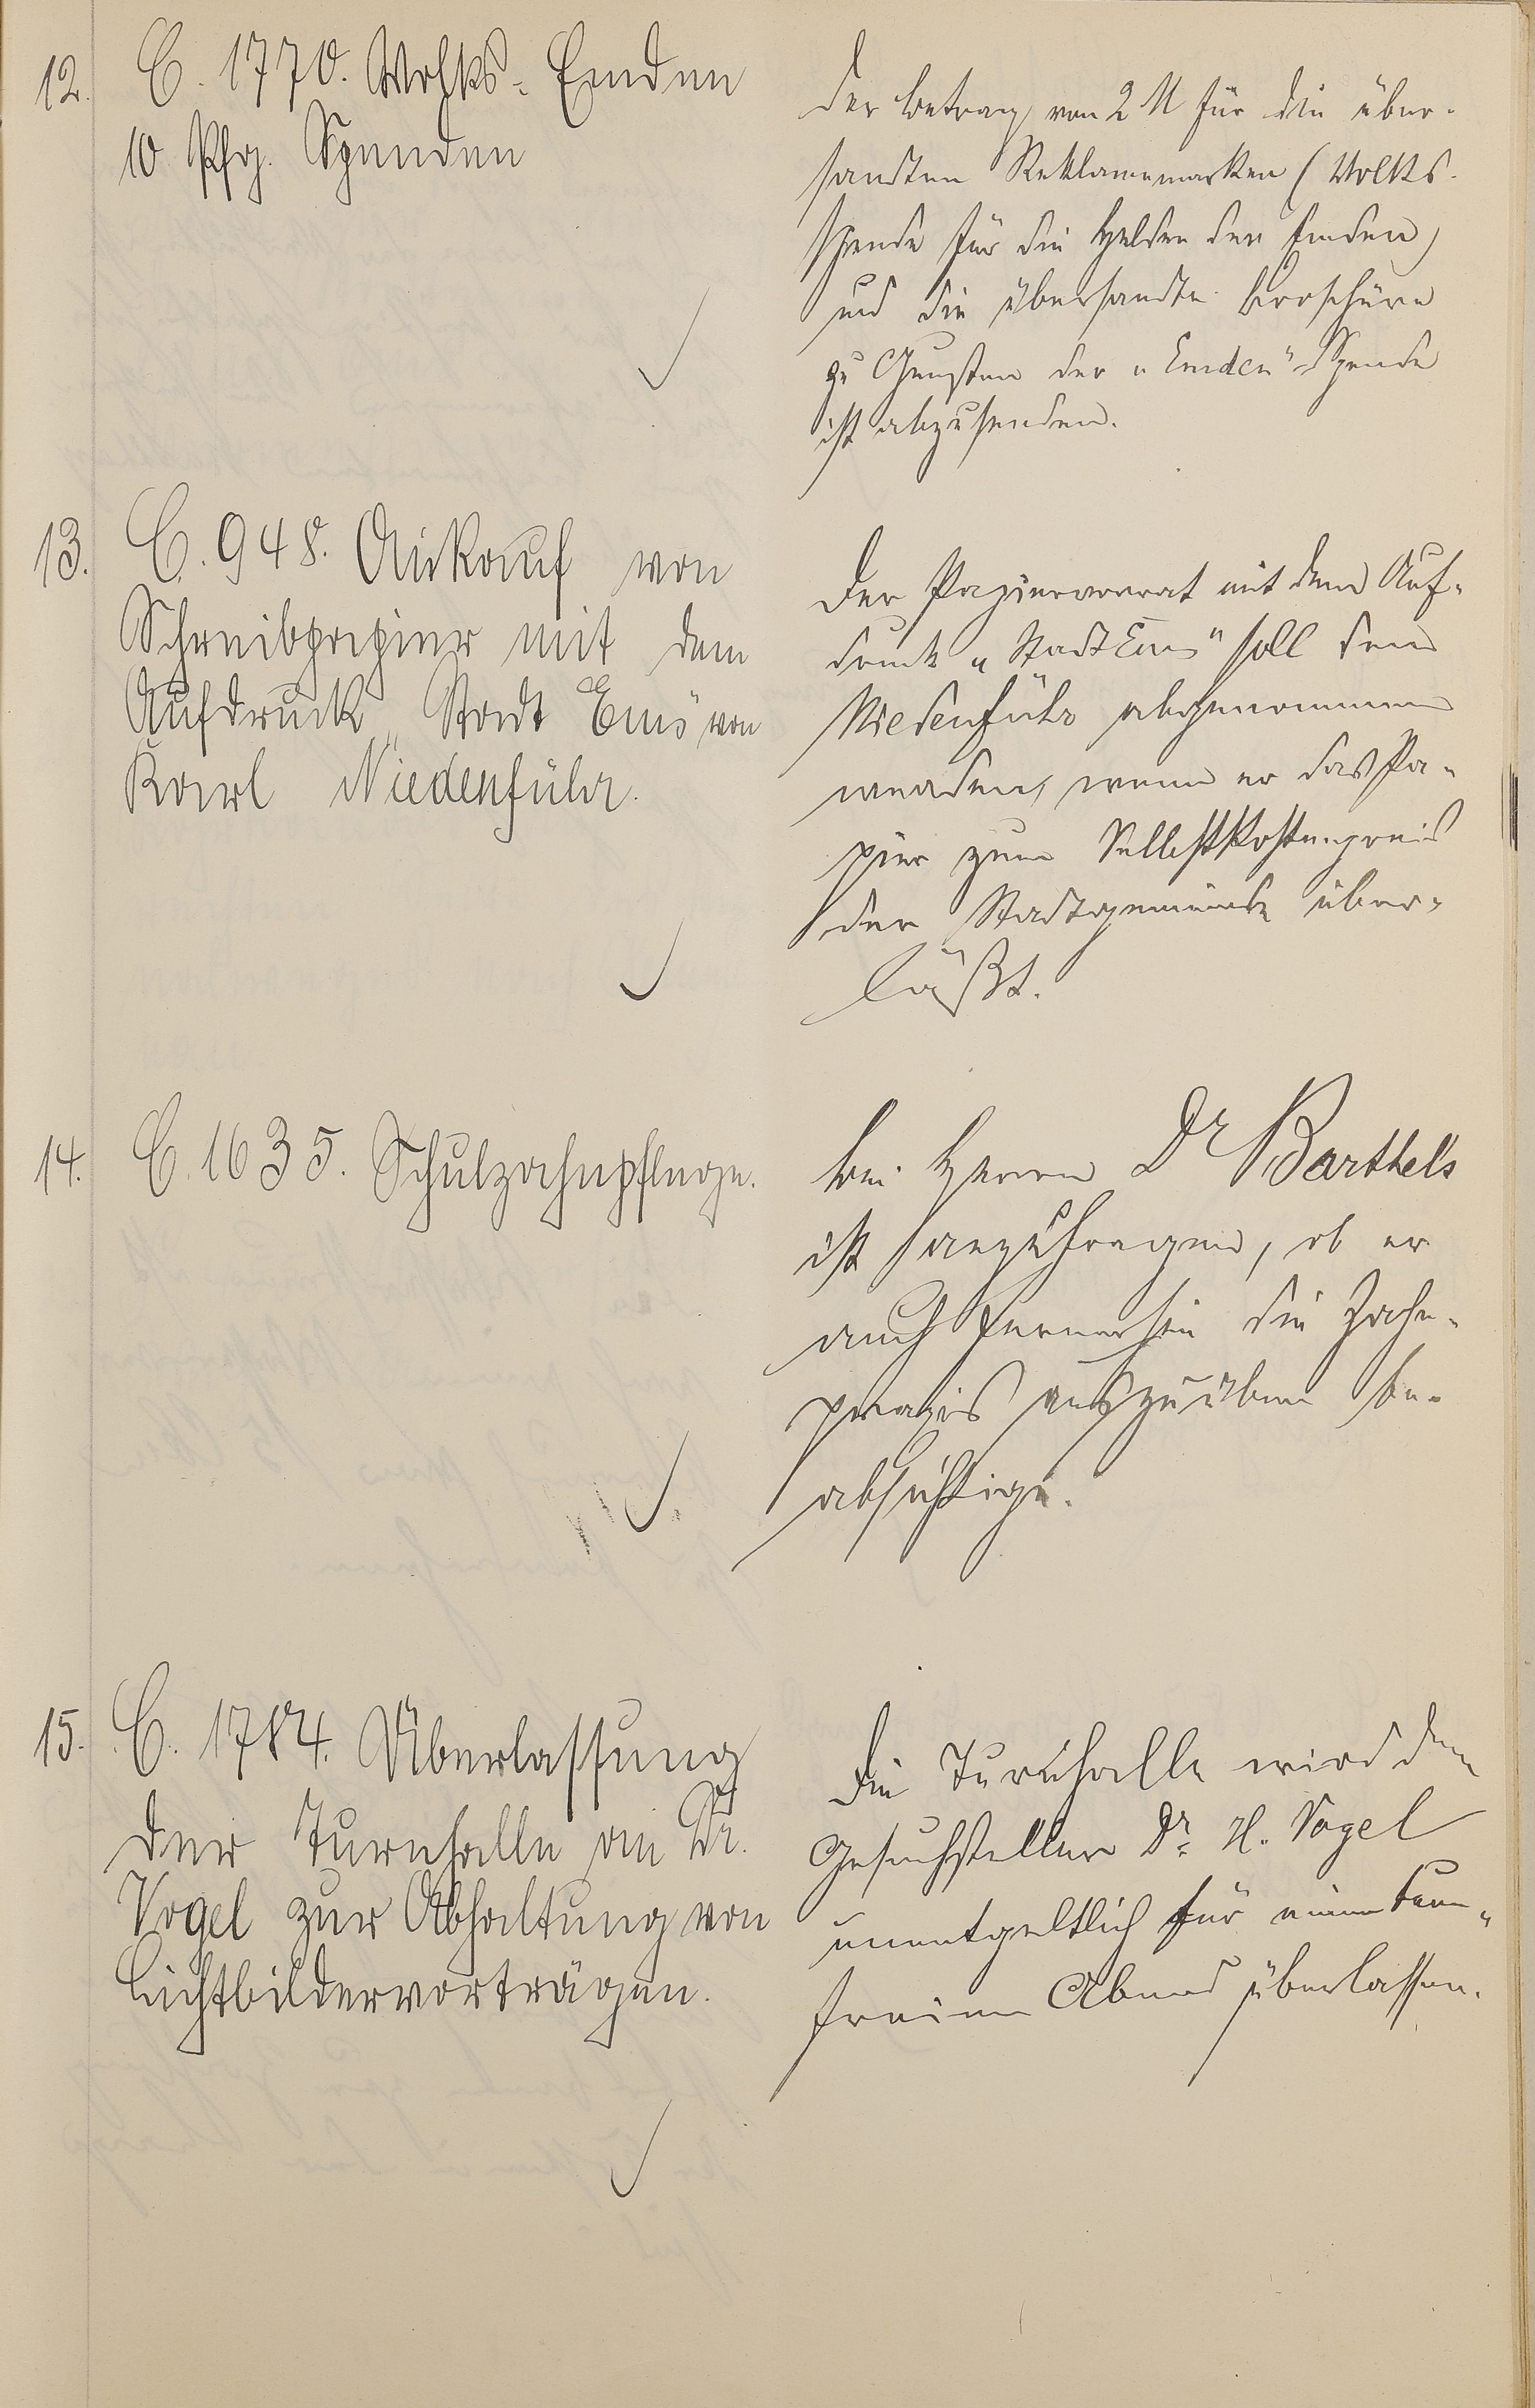 12. C. 1770. Volks-Emden
10 Pfg. Spenden
Der Betrag von 2 M für die über-
sandten Reklamemarken (Volks-
spende für die Helden der Emden)
und die übersandte Broschüre
zu Gunsten der „Emden"-Spende
ist abzusenden.
13. C. 948. Ankauf von
Schreibpapier mit dem
Aufdruck „Stadt Ems" von
Karl Niedenführ.
Der Papiervorrat mit dem Auf-
druck „Stadt Ems" soll dem
Niedenführ abgenommen
werden, wenn er das Pa-
pier zum Selbstkostenpreis
der Stadtgemeinde über-
läßt.
14. C. 1635. Schulzahnpflege.
Bei Herrn Dr Barthels
ist anzufragen, ob er
auch fernerhin die Zahn-
praxis auszuüben be-
absichtige.
15. C. 1784. Überlassung
der Turnhalle an Dr.
Vogel zur Abhaltung von
Lichtbildervorträgen.
Die Turnhalle wird dem
Gesuchsteller Dr. H. Vogel
unentgeltlich für einen turn-
freien Abend überlassen.